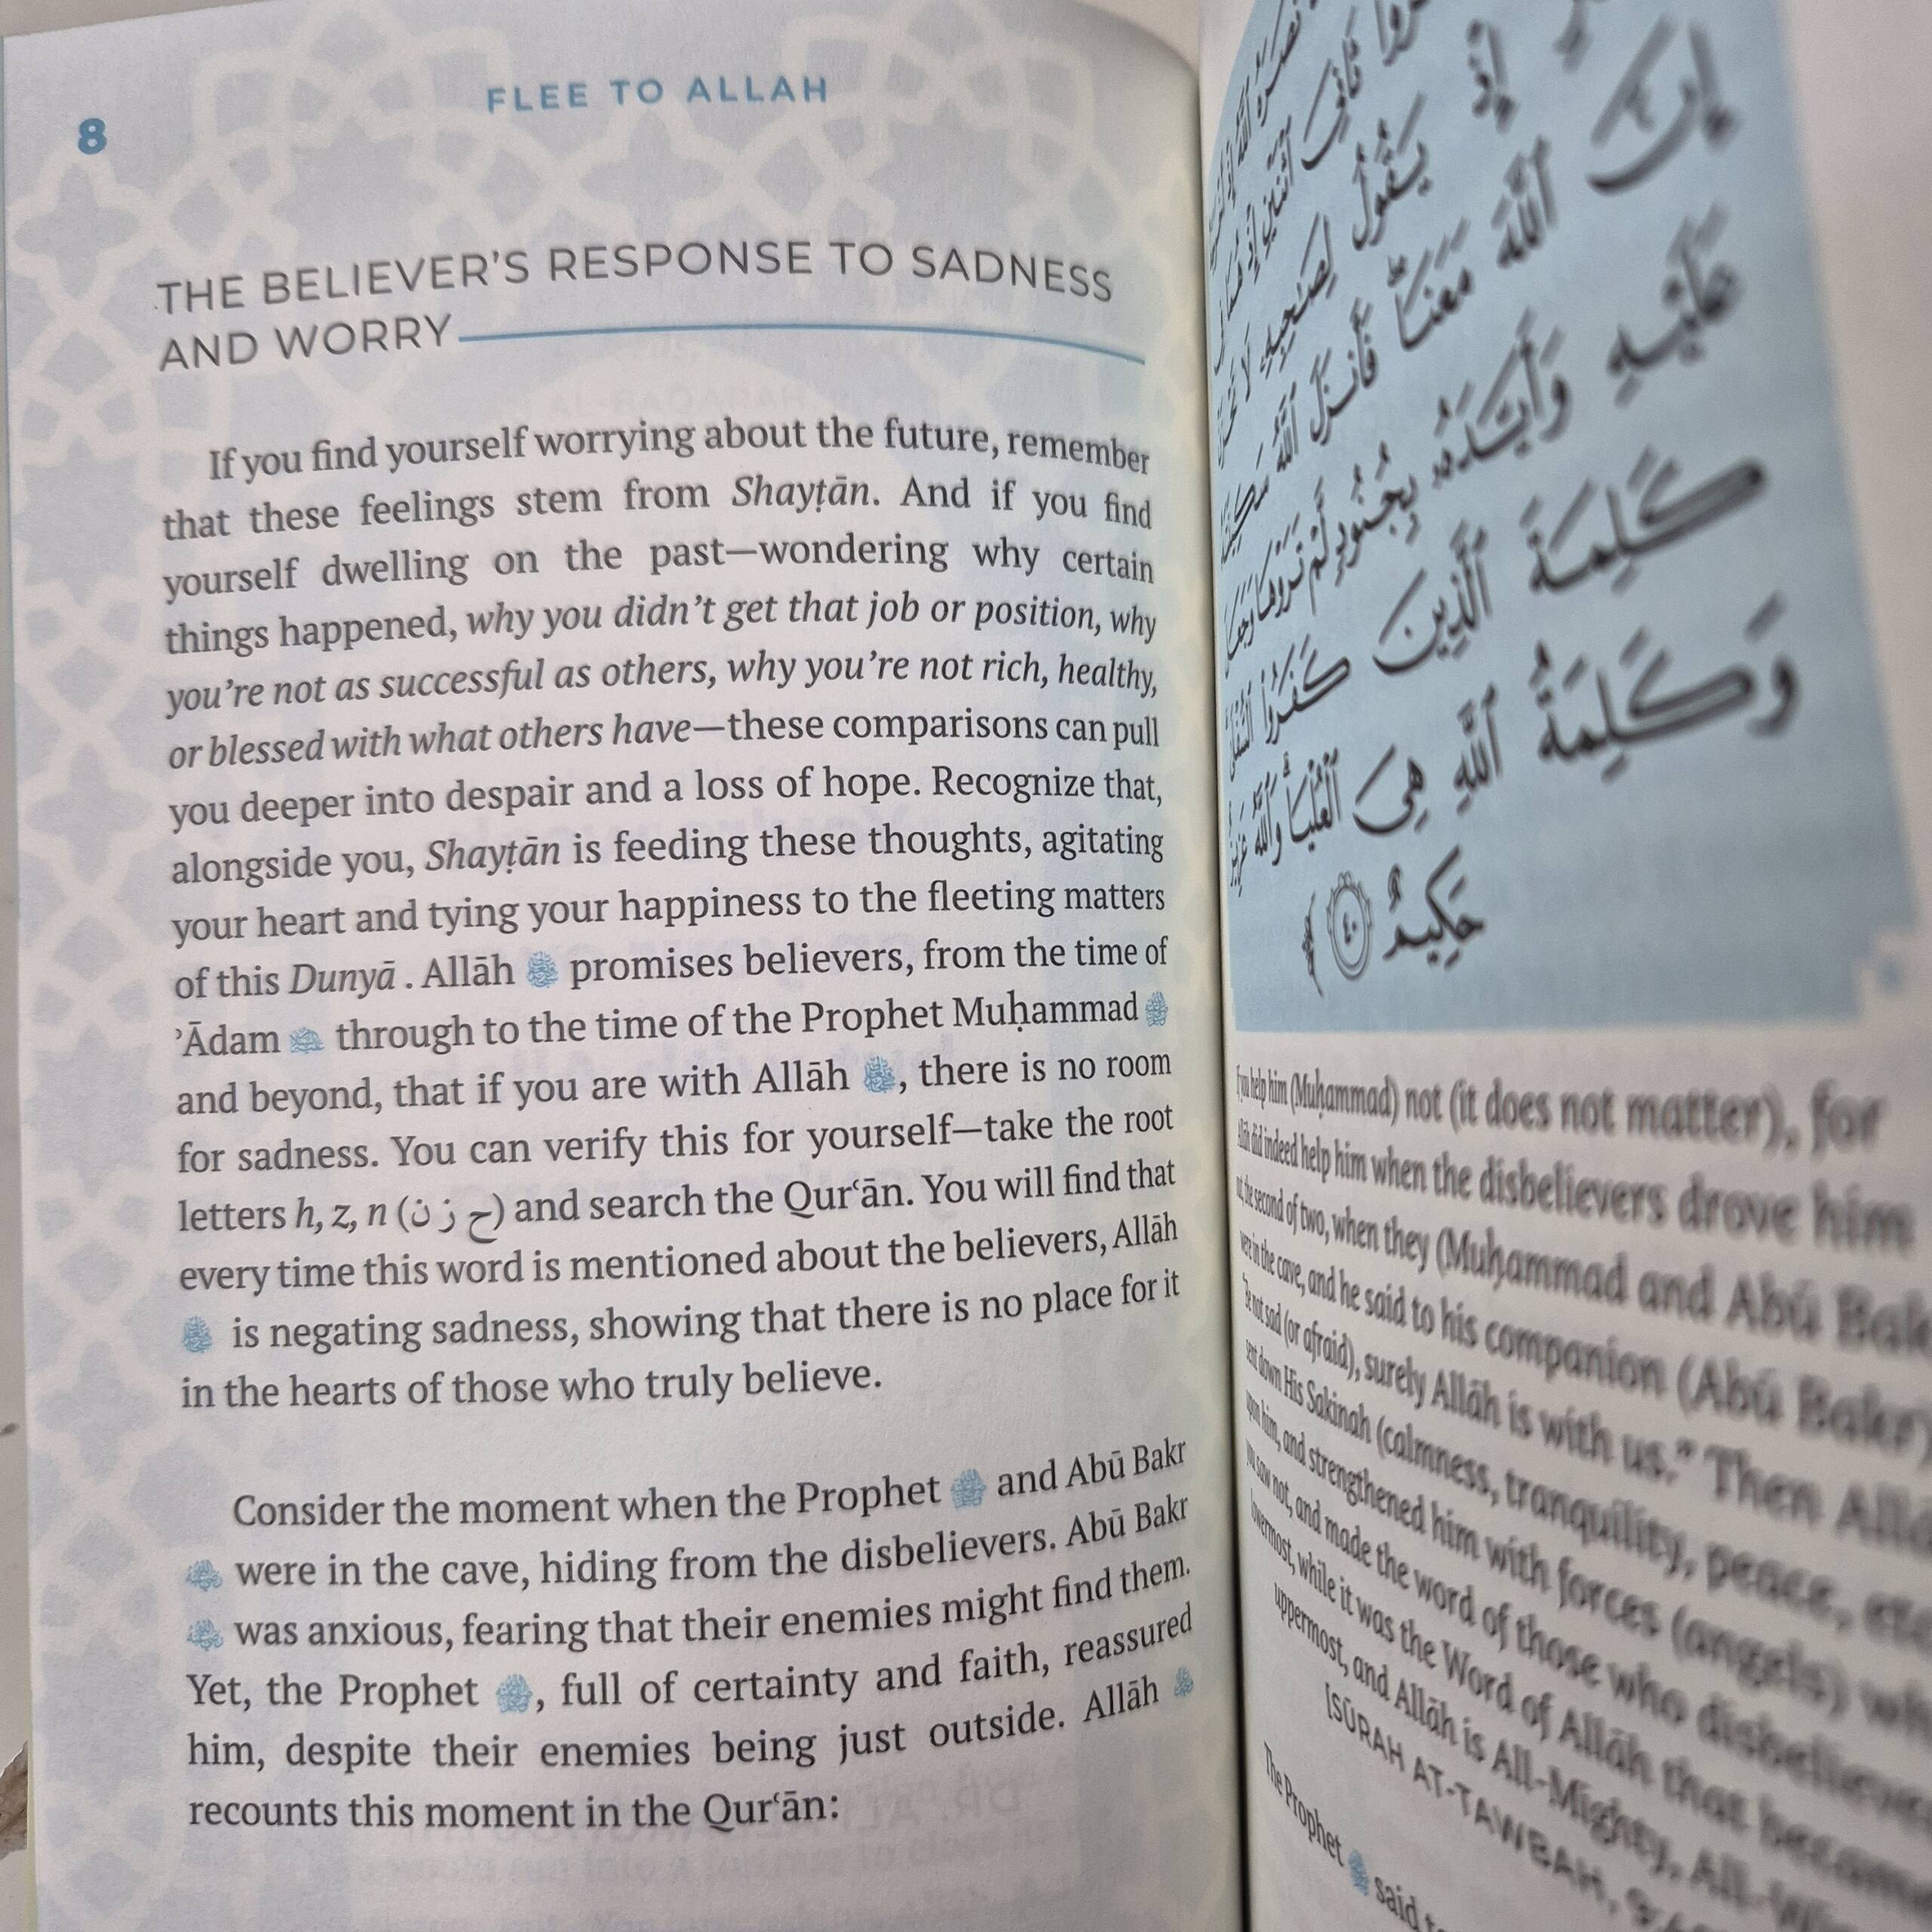 8
FLEE TO ALLAH
THE BELIEVER'S RESPONSE TO SADNESS
AND WORRY
If you find yourself worrying about the future, remember
that these feelings stem from Shayṭān. And if you find
yourself dwelling on the past—wondering why certain
things happened, why you didn't get that job or position, why
you're not as successful as others, why you're not rich, healthy,
or blessed with what others have—these comparisons can pull
you deeper into despair and a loss of hope. Recognize that,
alongside you, Shayṭān is feeding these thoughts, agitating
your heart and tying your happiness to the fleeting matters
of this Dunyā . Allāh promises believers, from the time of
ʾĀdam through to the time of the Prophet Muḥammad ﷺ
and beyond, that if you are with Allāh , there is no room
for sadness. You can verify this for yourself—take the root
letters h, z, n (ح ز ن) and search the Qurʿān. You will find that
every time this word is mentioned about the believers, Allāh
is negating sadness, showing that there is no place for it
in the hearts of those who truly believe.
Consider the moment when the Prophet ﷺ and Abū Bakr
were in the cave, hiding from the disbelievers. Abū Bakr
was anxious, fearing that their enemies might find them.
Yet, the Prophet ﷺ, full of certainty and faith, reassured
him, despite their enemies being just outside. Allāh
recounts this moment in the Qurʿān:
إِذْ يَقُولُ لِصَٰحِبِهِۦ لَا تَحْزَنْ
إِنَّ ٱللَّهَ مَعَنَا ۖ فَأَنزَلَ ٱللَّهُ سَكِينَتَهُۥ
عَلَيْهِ وَأَيَّدَهُۥ بِجُنُودٍ لَّمْ تَرَوْهَا وَجَعَلَ
كَلِمَةَ ٱلَّذِينَ كَفَرُوا۟ ٱلسُّفْلَىٰ
وَكَلِمَةُ ٱللَّهِ هِىَ ٱلْعُلْيَا ۗ وَٱللَّهُ عَزِيزٌ
حَكِيمٌ ٤٠
you help him (Muḥammad) not (it does not matter), for
Allāh did indeed help him when the disbelievers drove him
the second of two, when they (Muḥammad and Abū
were in the cave, and he said to his companion (Abū Bakr)
"Be not sad (or afraid), surely Allāh is with us." Then
sent down His Sakinah (calmness, tranquility, peace,
upon him, and strengthened him with forces (angels)
you saw not, and made the word of those who
lowermost, while it was the Word of Allāh that
uppermost, and Allāh is All-Mighty,
[SŪRAH AT-TAWBAH,
The Prophet ﷺ said